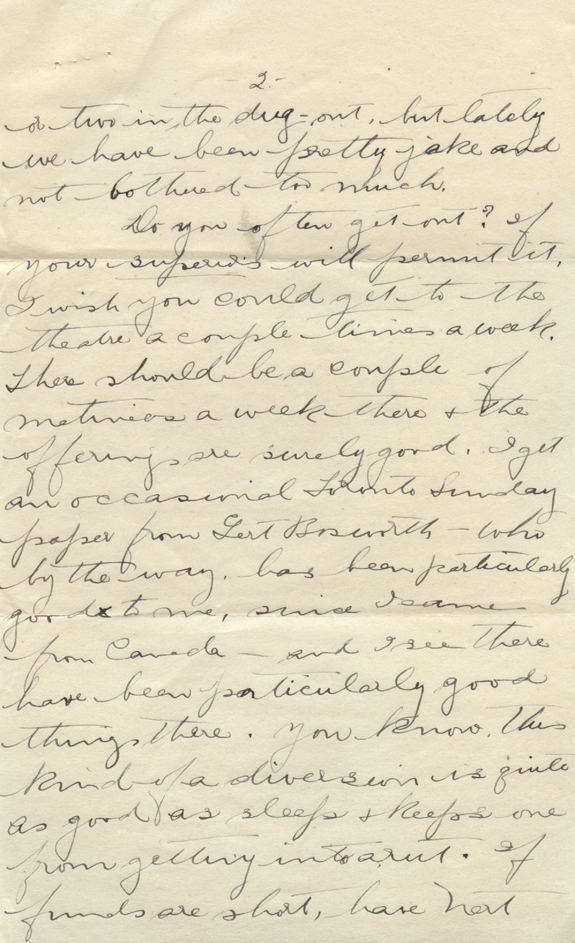 -2-
or two in the dug-out, but lately
we have been pretty jake and
not bothered too much.
Do you often get out? If
your supervis will permit it,
I wish you could get to the
theatre a couple times a week.
There should be a couple of
matinees a week there & the
offerings are surely good. I get
an occasional Toronto Sunday
paper from Gert Bosworth - who
by the way, has been particularly
good to me, since I came
from Canada - and I see there
have been particularly good
things there. You know, this
kind of a diversion is quite
as good as sleep & keeps one
from getting into a rut. If
funds are short, have